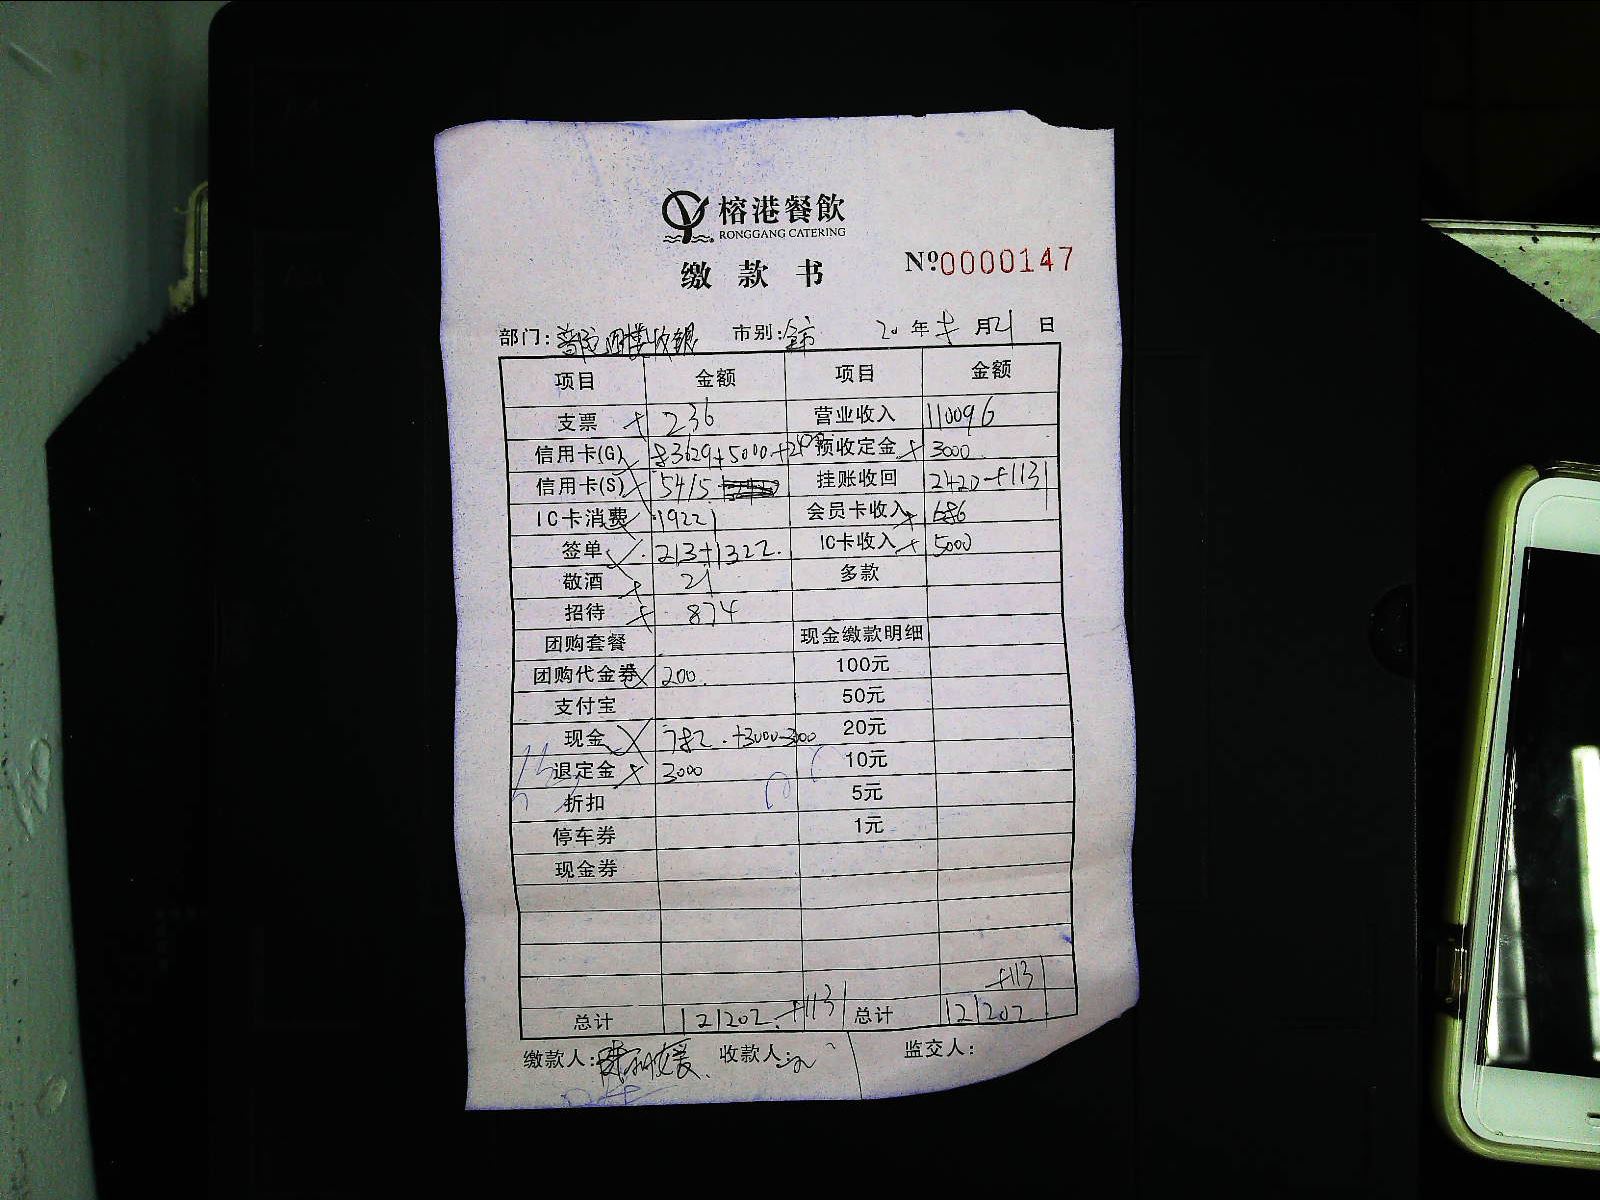 榕港餐飲
RONGGANG CATERING
缴款书 Nº0000147
部门: 四楼收银 市别: 全市 20 年 月 21 日
项目 金额 项目 金额
支票 236 营业收入 110096
信用卡(G) 83629+5000+2 预收定金 3000
信用卡(S) 5415 挂账收回 2420+1131
IC卡消费 19221 会员卡收入 686
签单 213+1322 IC卡收入 5000
敬酒 21 多款
招待 874
团购套餐 现金缴款明细
团购代金券 200 100元
支付宝 50元
现金 782+3000-3000 20元
退定金 3000 10元
折扣 5元
停车券 1元
现金券
+1131
总计 121202+1131 总计 121202
缴款人: 收款人: 监交人: